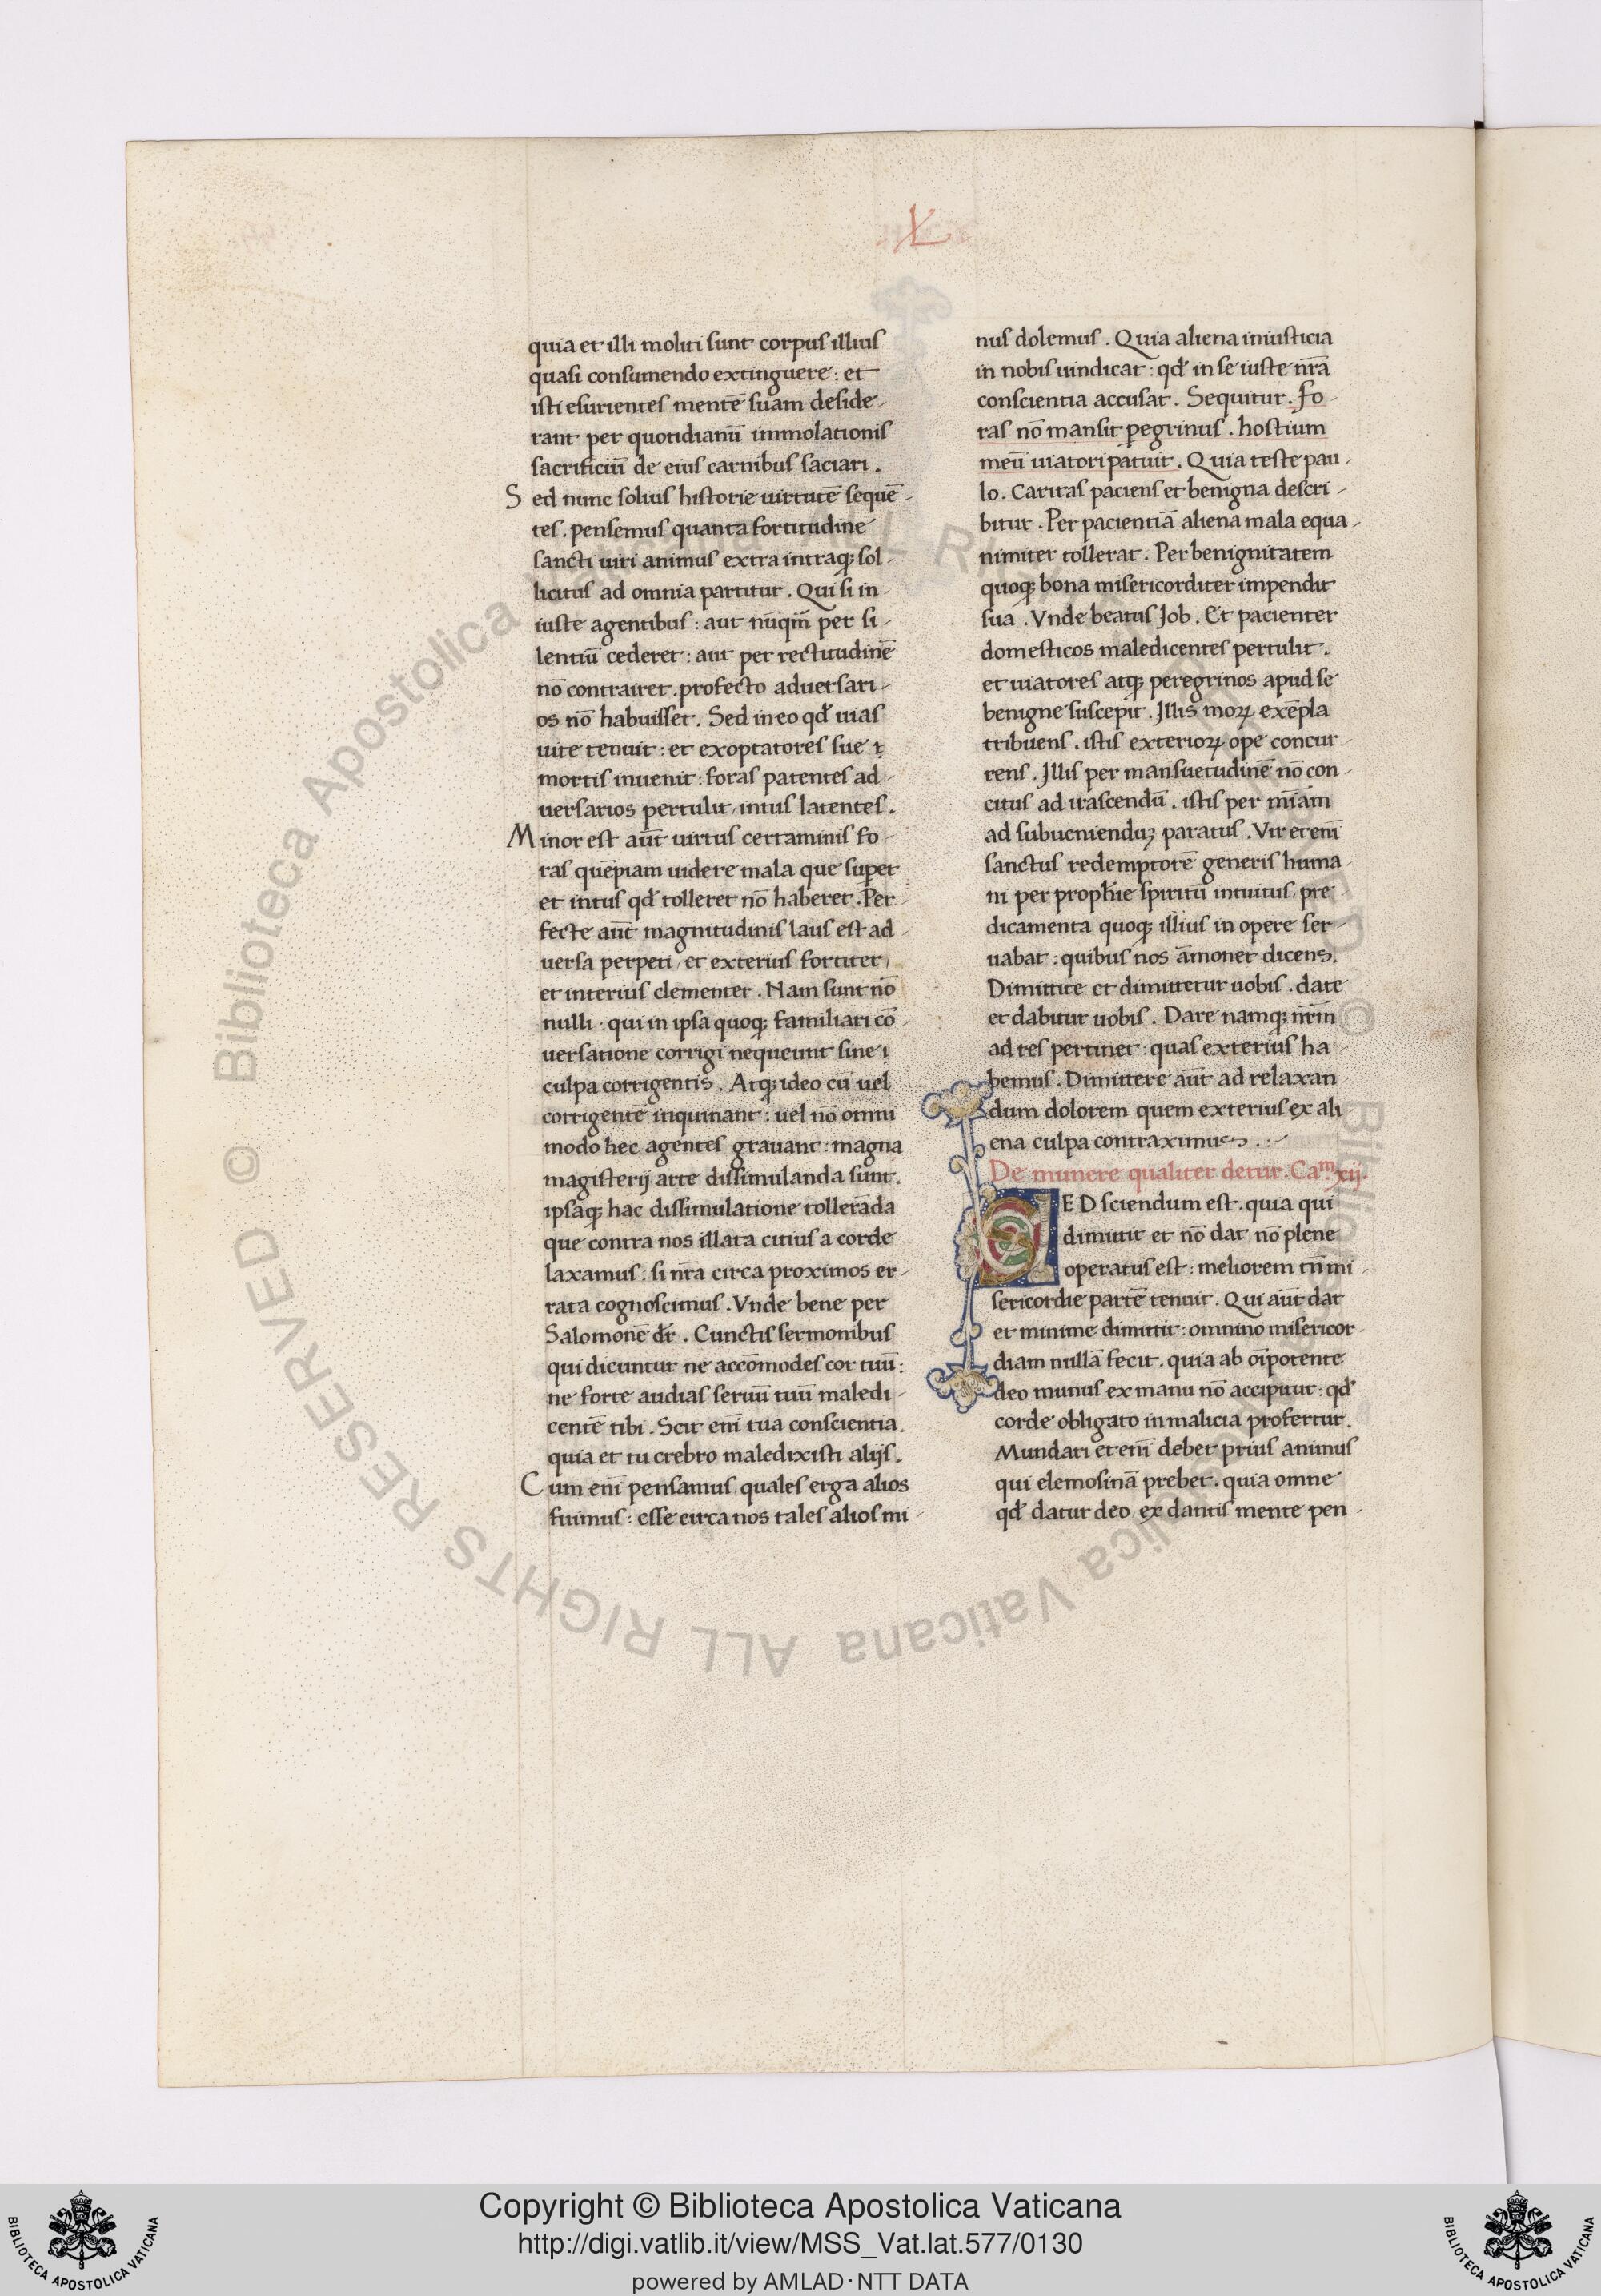 L
quia et illi moliti sunt corpus illius
quasi consumendo extinguere : et
isti esurientes mentē suam deside-
rant per quotidianū immolationis
sacrificiū de eius carnibus saciari .
Sed nunc solius historie uirtutē sequē-
tes . pensemus quanta fortitudine
sancti uiri animus extra intraqꝫ sol-
licitus ad omnia partitur . Qui si in-
iuste agentibus : aut nūqm̄ per si-
lentiū cederet : aut per rectitudinē
nō contrairet . profecto aduersari-
os nō habuisset . Sed in eo qđ uias
uite tenuit : et exoptatores sue
mortis inuenit : foras patentes ad-
uersarios pertulit / intus latentes .
Minor est aūt uirtus certaminis fo-
ras quēpiam uidere mala que supet
et intus qđ tolleret nō haberet . Per-
fecte aūt magnitudinis laus est ad-
uersa perpeti / et exterius fortiter /
et interius clementer . Nam sunt nō
nulli : qui in ipsa quoqꝫ familiari cō-
uersatione corrigi nequeunt sine
culpa corrigentis . Atqꝫ ideo cū uel
corrigentē inquinant : uel nō omni
modo hec agentes grauant : magna
magisterij arte dissimulanda sunt .
ipsaqꝫ hac dissimulatione tollerāda
que contra nos illata citius a corde
laxamus : si nr̄a circa proximos er-
rata cognoscimus . Vnde bene per
Salomonē dr̄ . Cunctis sermonibus
qui dicuntur ne accōmodes cor tuū :
ne forte audias seruū tuū maledi-
centē tibi . Scit enī tua conscientia .
quia et tu crebro maledixisti alijs .
Cum enī pensamus quales erga alios
fuimus : esse circa nos tales alios mi-
nus dolemus . Quia aliena iniusticia
in nobis uindicat : qđ in se iuste nr̄a
conscientia accusat . Sequitur . Fo-
ras nō mansit pegrinus . hostium
meū uiatori patuit . Quia teste pau-
lo . Caritas paciens et benigna descri-
bitur . Per pacientiā aliena mala equa-
nimiter tollerat . Per benignitatem
quoqꝫ bona misericorditer impendit
sua . Vnde beatus Job . Et pacienter
domesticos maledicentes pertulit .
et uiatores atqꝫ peregrinos apud se
benigne suscepit . Jllis moꝝ exēpla
tribuens . istis exterioꝝ ope concur-
rens . Jllis per mansuetudinē nō con-
citus ad irascendū . istis per mīam
ad subueniendūꝫ paratus . Vir etenī
sanctus redemptorē generis huma-
ni per prophīe spiritū intuitus / pre-
dicamenta quoqꝫ illius in opere ser-
uabat : quibus nos āmonet dicens .
Dimittite et dimittetur uobis . date
et dabitur uobis . Dare namqꝫ nr̄m
ad res pertinet : quas exterius ha-
bemus . Dimittere aūt ad relaxan
dum dolorem quem exterius ex ali-
ena culpa contraximus . : -
De munere qualiter detur . Caᵐ. xcij.
SED sciendum est . quia qui
dimittit et nō dat / nō plene
operatus est : meliorem tn̄ mi-
sericordie partē tenuit . Qui aūt dat
et minime dimittit : omnino misericor-
diam nullā fecit . quia ab oīpotente
deo munus ex manu nō accipitur : qđ
corde obligato in malicia profertur .
Mundari etenī debet prius animus
qui elemosinā prebet . quia omne
qđ datur deo / ex dantis mente pen-
Copyright © Biblioteca Apostolica Vaticana
http://digi.vatlib.it/view/MSS_Vat.lat.577/0130
powered by AMLAD·NTT DATA
BIBLIOTECA APOSTOLICA VATICANA
BIBLIOTECA APOSTOLICA VATICANA
© Biblioteca Apostolica Vaticana ALL RIGHTS RESERVED
© Biblioteca Apostolica Vaticana ALL RIGHTS RESERVED